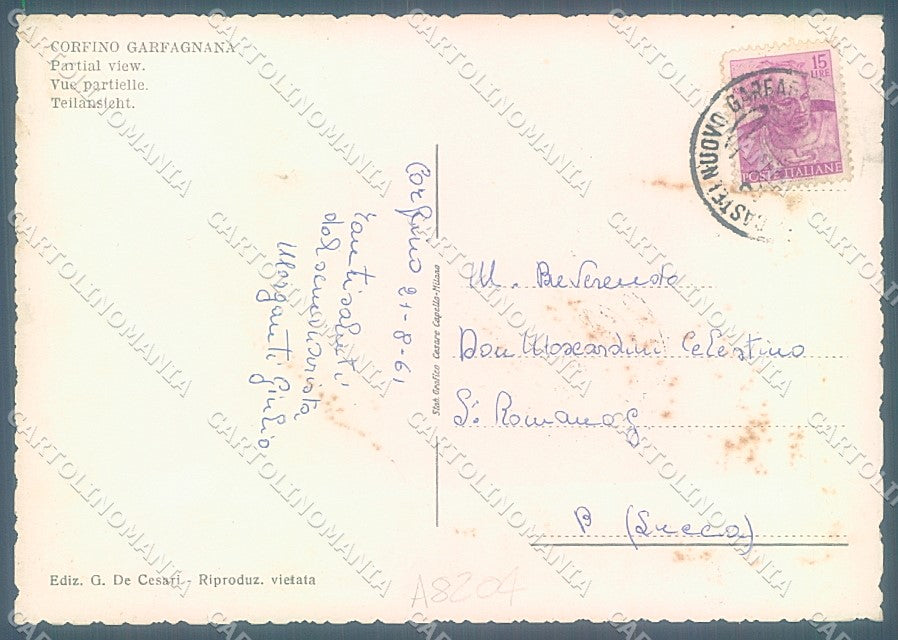 CORFINO GARFAGNANA
Partial view.
Vue partielle.
Teilansicht.
15
LIRE
POSTE ITALIANE
CASTELNUOVO GARFA
Corfino 21-8-61
Tanti saluti
dal seminarista
Morganti Giulio
Stab. Grafico Cesare Capello-Milano
M. Reverendo
Don Moscardini Celestino
S. Romano G
P (Lucca)
Ediz. G. De Cesari - Riproduz. vietata
A8204
CARTOLINOMANIA